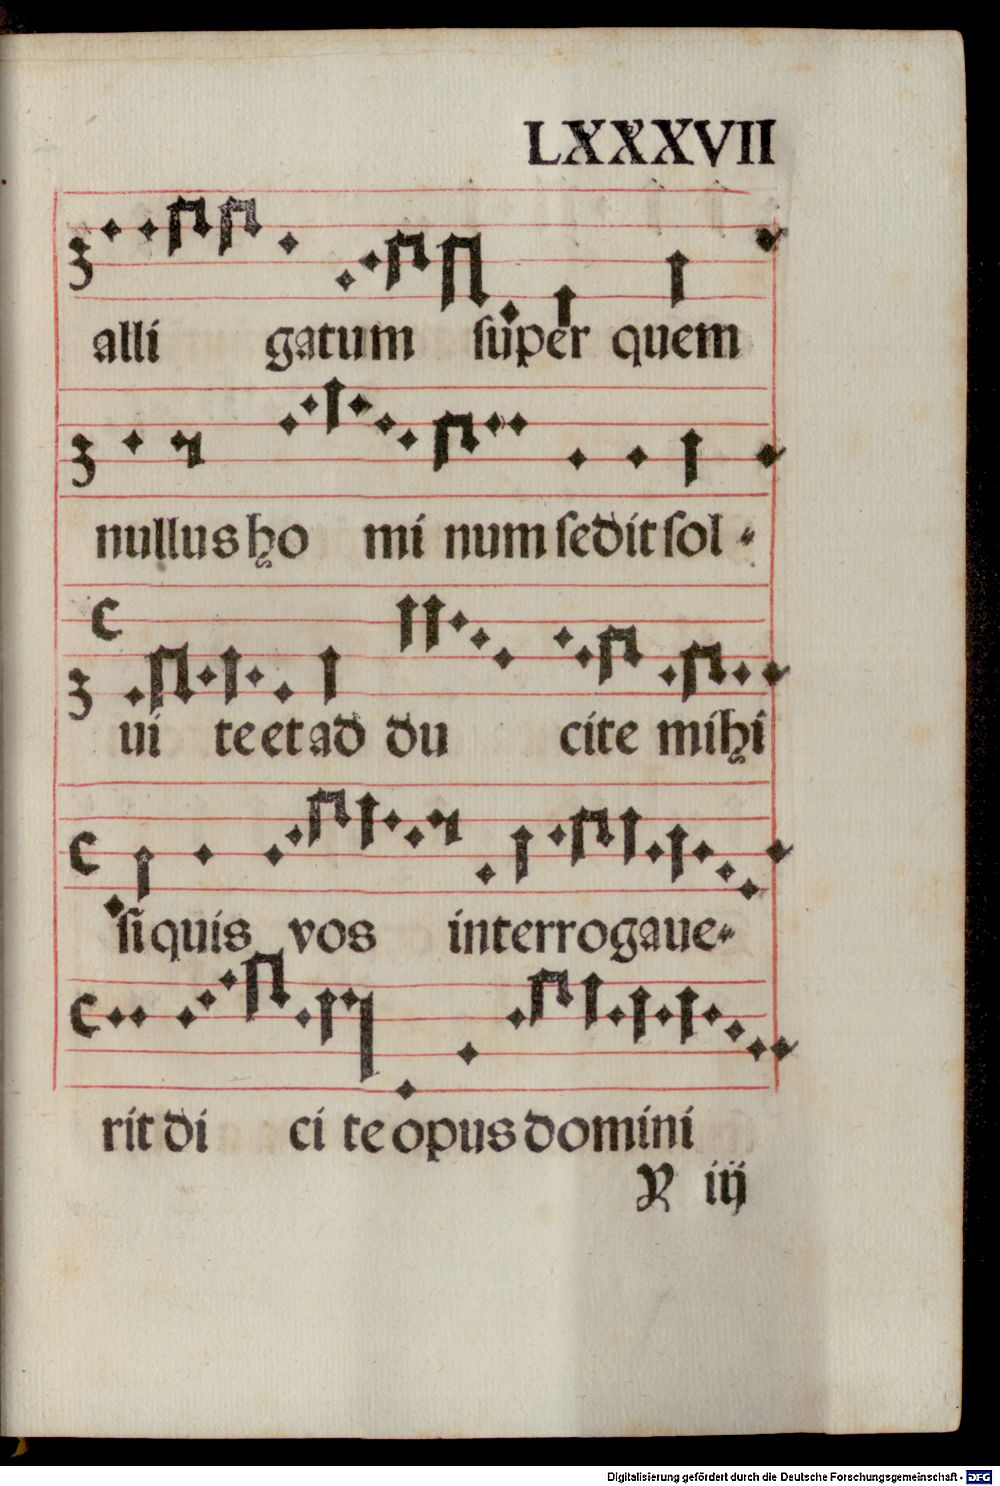 LXXXVII
alli gatum super quem
nullus ho mi num sedit sol-
ui te et ad du cite mihi
si quis vos interrogaue-
rit di ci te opus domini
Y iij
Digitalisierung gefördert durch die Deutsche Forschungsgemeinschaft - DFG